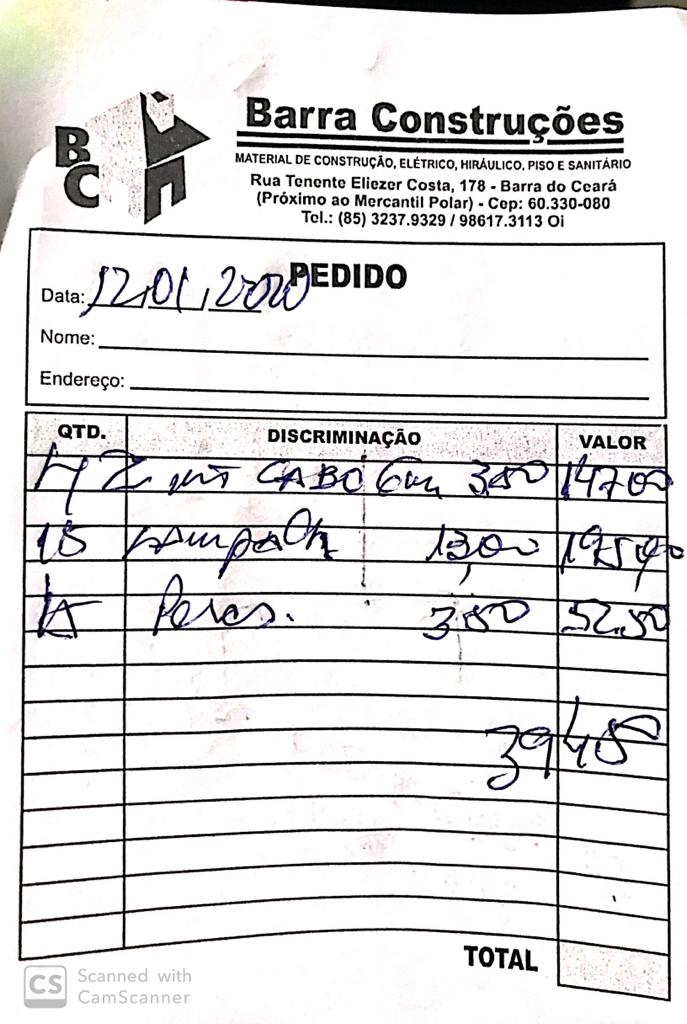 BC
Barra Construções
MATERIAL DE CONSTRUÇÃO, ELÉTRICO, HIRÁULICO, PISO E SANITÁRIO
Rua Tenente Eliezer Costa, 178 - Barra do Ceará
(Próximo ao Mercantil Polar) - Cep: 60.330-080
Tel.: (85) 3237.9329 / 98617.3113 Oi
PEDIDO
Data: 12,01,2020
Nome:
Endereço:
QTD. DISCRIMINAÇÃO VALOR
42 CABO 3.50 147.00
15 13,00 195,00
15 3.50 52.50
394.50
TOTAL
CS Scanned with
CamScanner